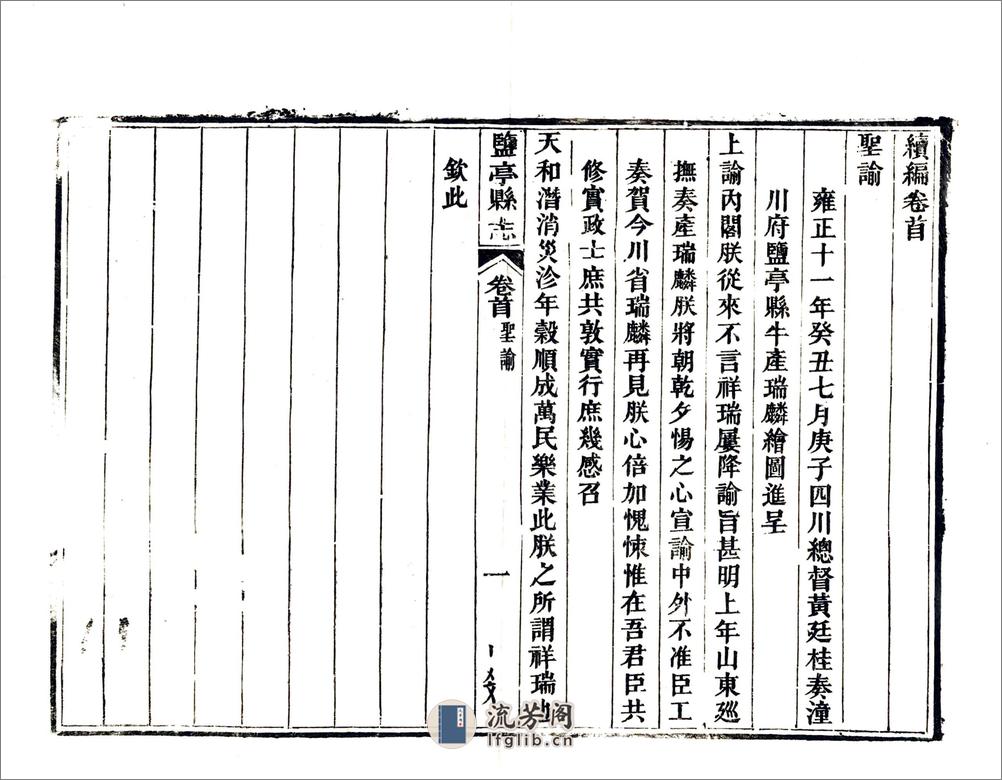 續編卷首
聖諭
雍正十一年癸丑七月庚子四川總督黃廷桂奏潼
川府鹽亭縣牛產瑞麟繪圖進呈
上諭內閣朕從來不言祥瑞屢降諭旨甚明上年山東廵
撫奏產瑞麟朕將朝乾夕惕之心宣諭中外不准臣工
奏賀今川省瑞麟再見朕心倍加愧悚惟在吾君臣共
修實政士庶共敦實行庶幾感召
天和潛消災沴年穀順成萬民樂業此朕之所謂祥瑞也
鹽亭縣志 卷首 聖諭 一
欽此
流芳阁
lfglib.cn